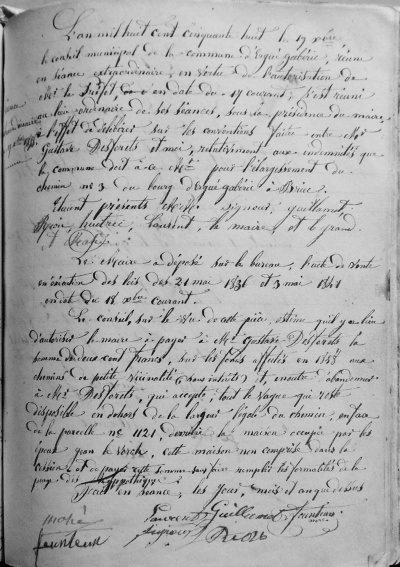 L'an mil huit cent cinquante huit le 19 xbre
le conseil municipal de la commune d'Ergué gabéric, réuni
en séance extraordinaire, en vertu de l'autorisation de
Mr le Préfet en date du 17 courant, s'est réuni
au lieu ordinaire de ses séances, sous la présidence du maire,
à l'effet de délibérer sur les conventions faire entre Mr
Gustave Desforets et moi, relativement aux indemnités que
la commune doit à ce Mr. pour l'élargissement du
chemin no 3 du bourg d'Ergué gabéric à Briec.
Etaient présents M.M. Signour, guillamet
huitric, Laurent, le maire, et le grand
Le Maire a déposé sur le bureau, l'acte de vente
en exécution des lois des 21 mai 1836 et 3 mai 1841
en date du 18 xbre courant.
Le conseil, sur le vu de cette pièce, estime qu'il y a lieu
d'autoriser le maire à payer à Mr Gustave Desforets la
somme de deux cent francs, sur les fonds affectés en 1858 aux
chemins de petite vicinalité (sans intérêts) et, en outre d'abandonner
à Mr Desforets, qui accepte, tout le vague qui reste
disponible en dehors de la largeur légale du chemin, en face
de la parcelle no 1121, derrière la maison occupée par les
jean le Corch, cette maison non comprise dans la
cession et de payer cette somme sans faire remplir les formalités de la
purge des hypothèques.
fait en séance, les jour, mois et an que dessus
Laurent Guillamet
Signour
feunteun